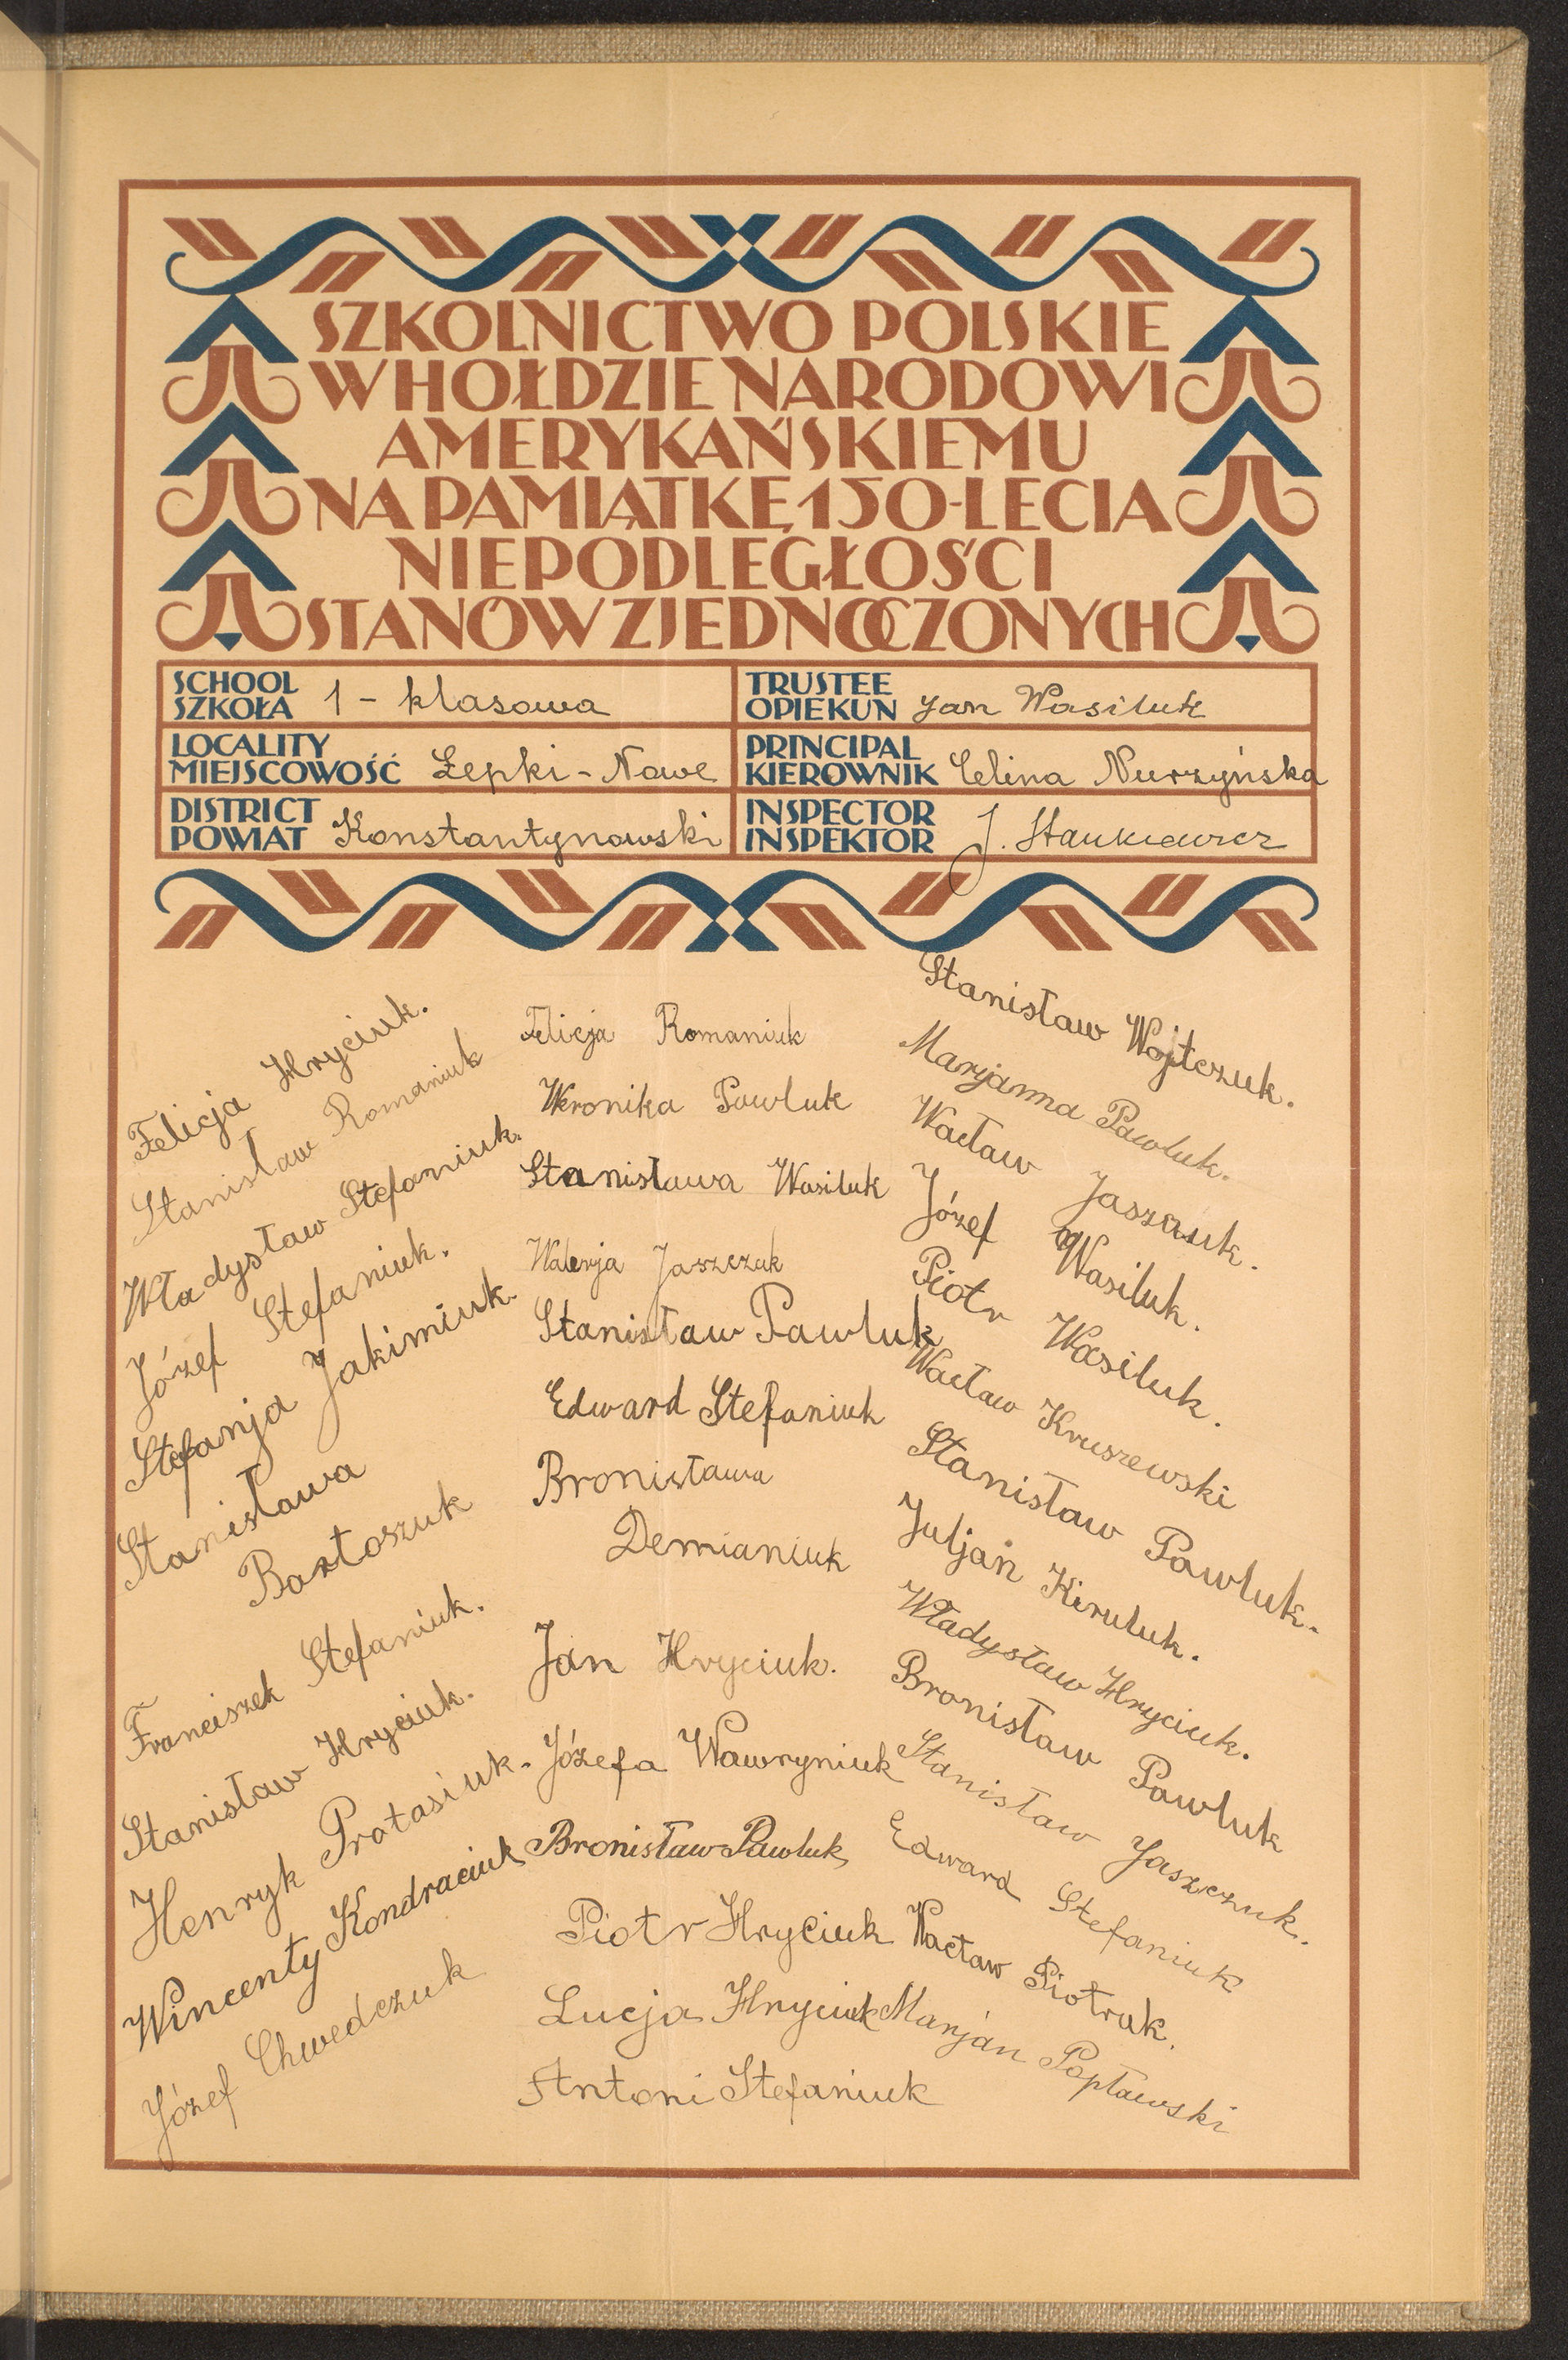 SZKOLNICTWO POLSKIE
W HOŁDZIE NARODOWI
AMERYKAŃSKIEMU
NA PAMIĄTKĘ 150-LECIA
NIEPODLEGŁOŚCI
STANÓW ZJEDNOCZONYCH
SCHOOL
SZKOŁA 1 - klasowa
TRUSTEE
OPIEKUN Jan Wasiluk
LOCALITY
MIEJSCOWOŚĆ Łepki - Nowe
PRINCIPAL
KIEROWNIK Celina Nurzyńska
DISTRICT
POWIAT Konstantynowski
INSPECTOR
INSPEKTOR J. Stankiewicz
Felicja Hryciuk.
Stanisław Romaniuk
Władysław Stefaniuk.
Józef Stefaniuk.
Stefanja Jakimiuk.
Stanisława
Bartoszuk
Franciszek Stefaniuk.
Stanisław Hryciuk.
Henryk Protasiuk.
Wincenty Kondraciuk
Józef Chwedczuk
Felicja Romaniuk
Weronika Pawluk
Stanisława Wasiluk
Walerja Jaszczuk
Stanisław Pawluk
Edward Stefaniuk
Bronisława
Demianiuk
Jan Hryciuk.
Józefa Wawryniuk
Bronisław Pawluk
Piotr Hryciuk
Lucja Hryciuk
Antoni Stefaniuk
Stanisław Wojtczuk.
Marjanna Pawluk.
Wacław Jaszczuk.
Józef Wasiluk.
Piotr Wasiluk.
Wacław Kruszewski
Stanisław Pawluk.
Juljan Kiruluk.
Władysław Hryciuk.
Bronisław Pawluk
Stanisław Jaszczuk.
Edward Stefaniuk
Wacław Piotruk.
Marjan Popławski